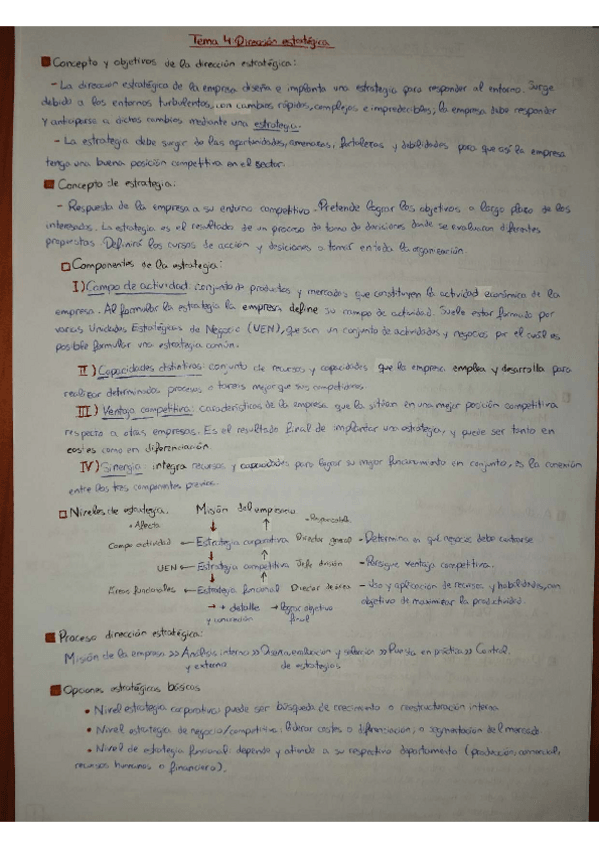 Tema 4: Dirección estratégica
Concepto y objetivos de la dirección estratégica:
- La dirección estratégica de la empresa diseña e implanta una estrategia para responder al entorno. Surge
debido a los entornos turbulentos, con cambios rápidos, complejos e impredecibles, la empresa debe responder
y anticiparse a dichos cambios mediante una estrategia.
- La estrategia debe surgir de las oportunidades, amenazas, fortalezas y debilidades para que así la empresa
tenga una buena posición competitiva en el sector.
Concepto de estrategia:
- Respuesta de la empresa a su entorno competitivo. Pretende lograr los objetivos a largo plazo de los
interesados. La estrategia es el resultado de un proceso de toma de decisiones donde se evaluaran diferentes
propuestas. Definirá los cursos de acción y desiciones a tomar en toda la organización.
Componentes de la estrategia:
I) Campo de actividad: conjunto de productos y mercados que constituyen la actividad económica de la
empresa. Al formular la estrategia la empresa define su campo de actividad. Suele estar formado por
varias Unidades Estratégicas de Negocio (UEN), que son un conjunto de actividades y negocios por el cuál es
posible formular una estrategia común.
II) Capacidades distintivas: conjunto de recursos y capacidades que la empresa emplea y desarrolla para
realizar determinados procesos o tareas mejor que sus competidores.
III) Ventaja competitiva: características de la empresa que la sitúan en una mejor posición competitiva
respecto a otras empresas. Es el resultado final de implantar una estrategia, y puede ser tanto en
costes como en diferenciación.
IV) Sinergia: integra recursos y capacidades para lograr su mejor funcionamiento en conjunto, es la conexión
entre los tres componentes previos.
Niveles de estrategia. Misión del empresario
• Afecta • Responsable
Campo actividad ← Estrategia corporativa Director general - Determina en qué negocios debe centrarse
UEN ← Estrategia competitiva Jefe división - Persigue ventaja competitiva.
Áreas funcionales ← Estrategia funcional Director de área - Uso y aplicación de recursos y habilidades, con
→ + detalle → Lograr objetivo objetivo de maximizar la productividad.
y concreción final
Proceso dirección estratégica:
Misión de la empresa >> Análisis interno >> Diseño, evaluación y selección >> Puesta en práctica >> Control.
y externo de estrategias
Opciones estratégicas básicas
• Nivel estrategia corporativa: puede ser búsqueda de crecimiento o reestructuración interna
• Nivel estrategia de negocio/competitiva: liderar costes o diferenciación, o segmentación del mercado
• Nivel de estrategia funcional: depende y atiende a su respectivo departamento (producción, comercial,
recursos humanos o financiero).